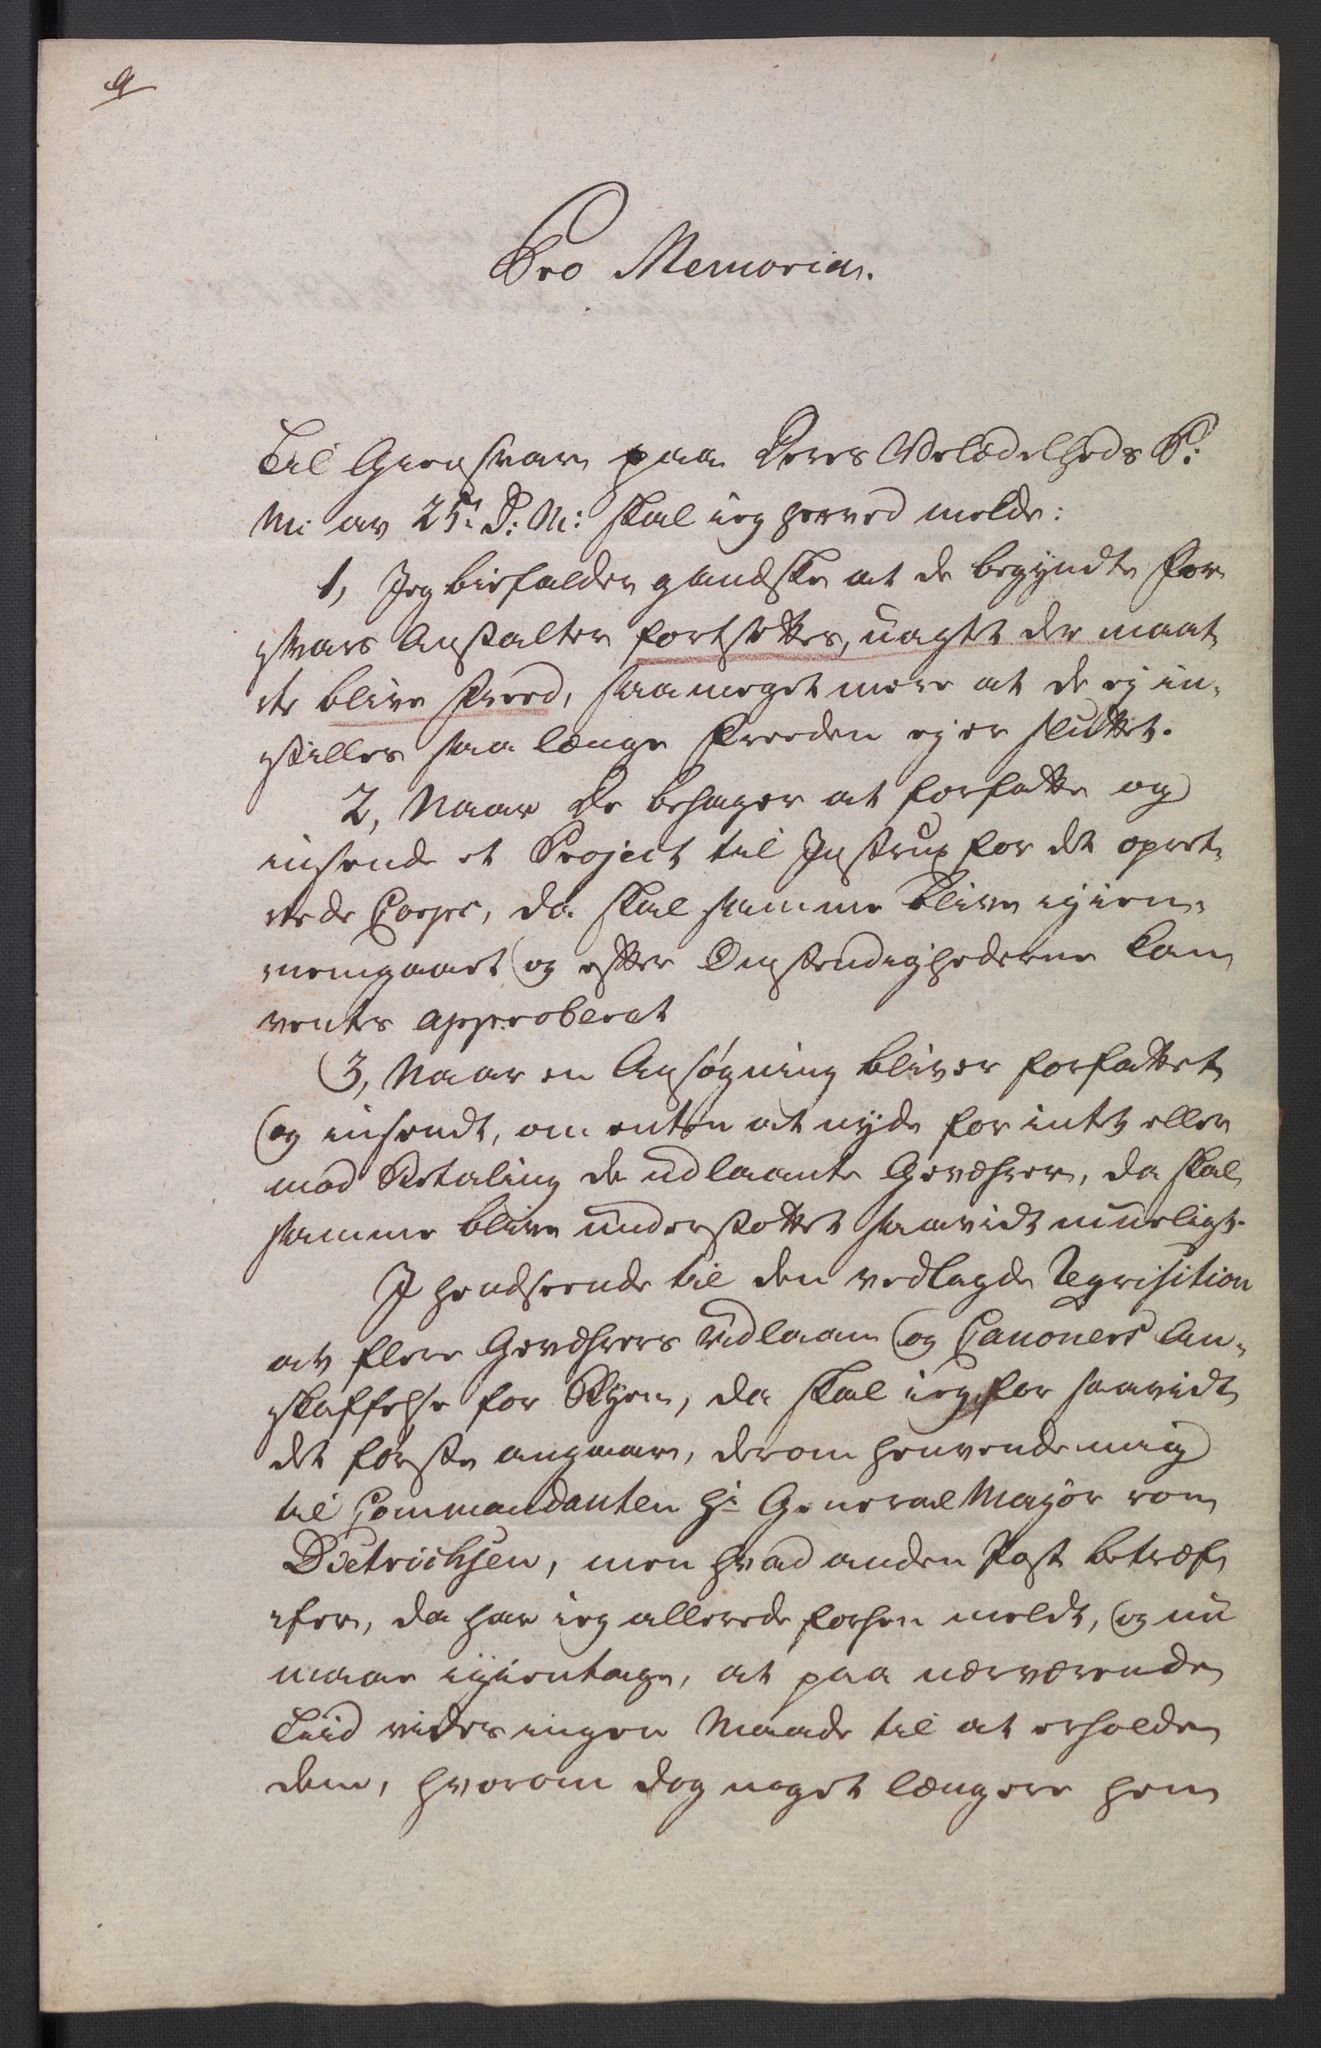 9
Pro Memoria.
Til Giensvar paa Deres Velædelheds P:
M: av 25. D: M: skal ieg herved melde:
1, Jeg biefalder gandske at de begyndte For
svars Anstalter fortsettes, uagtet der maat
te blive Freed, saa meget mere at de ej in,
stilles saa længe Freeden ej er sluttet.
2, Naar De behager at forfatte og
insende et Project til Instrux for det opret,
tede Corps, da skal samme blive igien,
nemgaaet og efter Omstendighederne kan
ventes approberet
3, Naar en Ansøgning bliver forfattet
og insendt, om enten at nyde for intet eller
mod Betaling de udlaante Geværer, da skal
samme blive understøttet saavidt mueligt.
I henseende til den vedlagde Reqvisition
av flere Geværers Udlaan og Canoners An,
skaffelse for Byen, da skal ieg for saavidt
det første angaaer, derom henvende mig
til Commandanten Hr General Major von
Dietrichsen, men hvad anden Post betræf
fer, da har ieg allerede forhen meldt, og nu
maae igientage, at paa nærværende
Tiid vides ingen Maade til at erholde
dem, hvorom dog noget længere hen